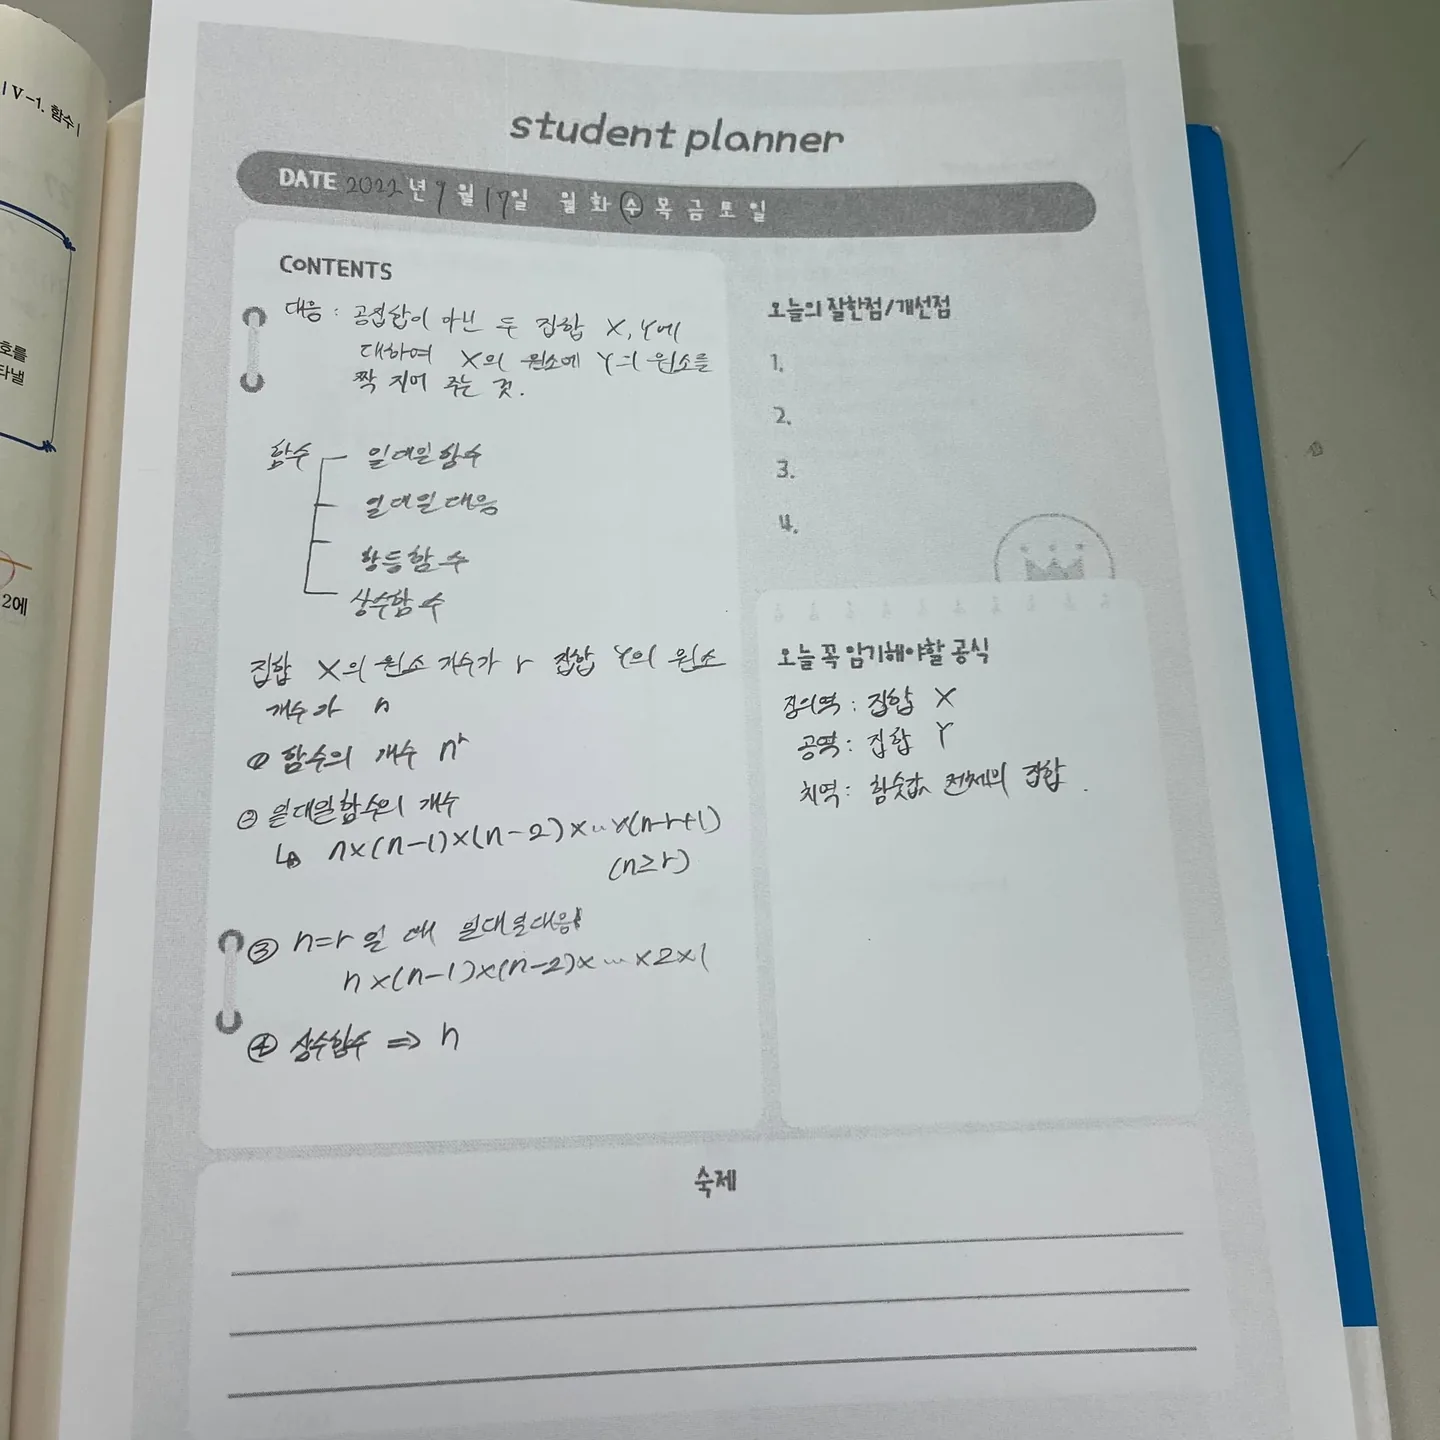 | V-1. 함수 |
호를
타낼
2에
student planner
DATE 2022년 월 17일 월 화 수 목 금 토 일
CONTENTS
대응 : 공집합이 아닌 두 집합 X, Y에
대하여 X의 원소에 Y의 원소를
짝 지어 주는 것.
함수 일대일함수
일대일대응
항등함수
상수함수
집합 X의 원소 개수가 r 집합 Y의 원소
개수가 n
① 함수의 개수 nʳ
② 일대일함수의 개수
↳ n×(n-1)×(n-2)×…×(n-r+1)
(n≥r)
③ n=r 일 때 일대일대응
n×(n-1)×(n-2)×…×2×1
④ 상수함수 ⇒ n
오늘의 잘한점/개선점
1.
2.
3.
4.
오늘 꼭 암기해야할 공식
정의역 : 집합 X
공역 : 집합 Y
치역 : 함숫값 전체의 집합.
숙제